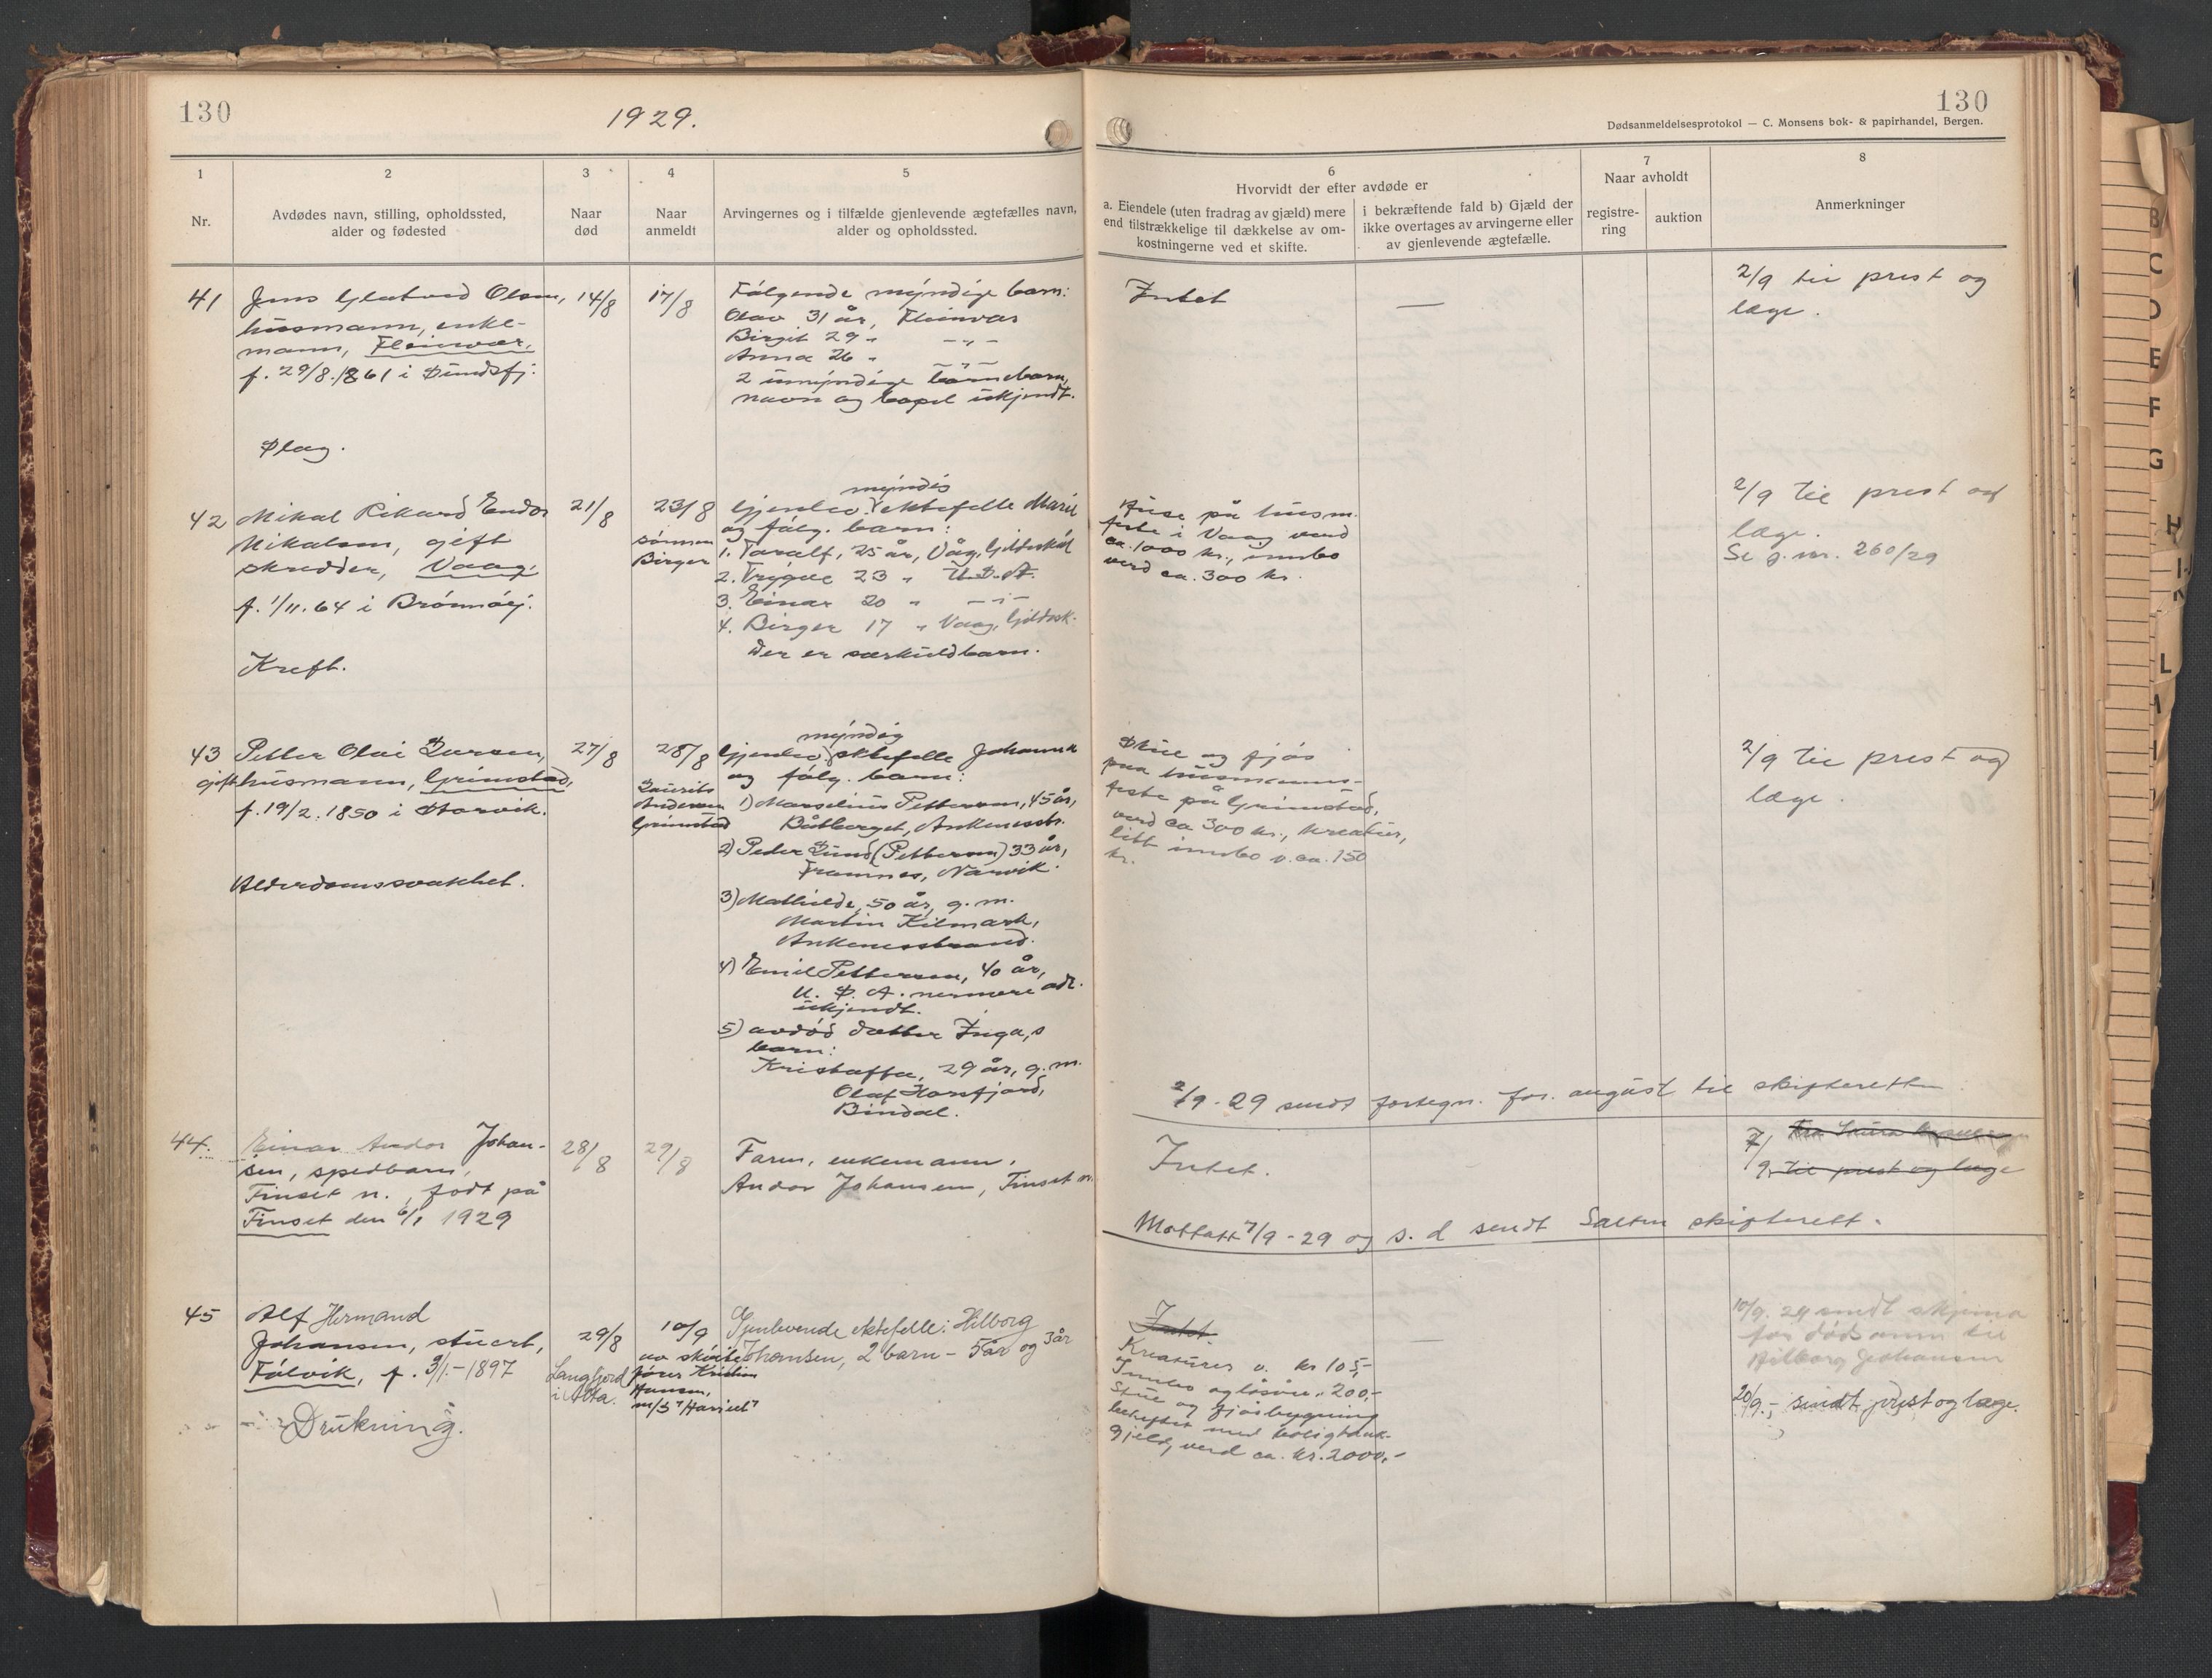 130
1929.
130
Dødsanmeldelsesprotokol — C. Monsens bok- & papirhandel, Bergen.
1
Nr.
2
Avdødes navn, stilling, opholdssted,
alder og fødested
3
Naar
død
4
Naar
anmeldt
5
Arvingernes og i tilfælde gjenlevende ægtefælles navn,
alder og opholdssted.
6
Hvorvidt der efter avdøde er
a. Eiendele (uten fradrag av gjæld) mere
end tilstrækkelige til dækkelse av om-
kostningerne ved et skifte.
i bekræftende fald b) Gjæld der
ikke overtages av arvingerne eller
av gjenlevende ægtefælle.
7
Naar avholdt
registre-
ring
auktion
8
Anmerkninger
41
Jens Olsen,
husmann, enke-
mann, Fleinvær,
f. 29/8.1861 i
Slag.
14/8
17/8
Følgende myndige barn:
Olav 31 år, Fleinvær
Birgit 29 " -"-
Anna 26 " -"-
2 umyndige barnebarn,
navn og bopel ukjendt.
Intet
—
2/9 til prest og
læge.
42
Mikal Rikard Endor
Mikalsen, gift
skredder, Vaag,
f. 1/11.64 i Brønnøy.
Kreft.
21/8
23/8
sønnen
Birger
myndig
Gjenlev. ektefelle Marie
og følg. barn:
1. Toralf, 25 år, Våg, Gildeskål
2. Trygve 23 " U.S.A.
3. Einar 20 " -"-
4. Birger 17 " Vaag, Gildesk.
Der er særkuldbarn.
Huse på husm.
feste i Vaag verd
ca. 1000 kr., innbo
verd ca. 300 kr.
2/9 til prest og
læge.
Se j.nr. 260/29
43
Petter Olai Larsen,
gift husmann, Grimstad,
f. 19/2.1850 i Storvik.
Alderdomssvakhet.
27/8
28/8
Laurits
Andersen
Grimstad
myndig
Gjenlev. ektefelle Johanna
og følg. barn:
1) Marselius Pettersen, 45 år,
Båtberget, Ankenesstr.
2) Peder Lund (Pettersen) 33 år,
Framnes, Narvik.
3) Mathilde, 50 år, g.m.
Martin Kilmark,
Ankenesstrand.
4) Emil Pettersen, 40 år,
U.S.A. nermere adr.
ukjendt.
5) avdød datter Inga,s
barn:
Kristoffa, 29 år, g.m.
Olaf Horsfjord,
Bindal.
Stue og fjøs
paa husmanns-
feste på Grimstad,
verd ca 300 kr., kreatur,
litt innbo v. ca. 150
kr.
2/9 til prest og
læge.
2/9-29 sendt fortegn. for august til skifteretten
44.
Einar Andor Johan-
sen, spedbarn,
Finset n., født på
Finset den 6/1 1929
28/8
29/8
Faren, enkemann,
Andor Johansen, Finset n.
Intet.
7/9 til prest og læge
Mottatt 7/9-29 og s.d sendt Salten skifterett.
45
Alf Hermand
Johansen, stuert,
Følvik, f. 3/1.-1897
Drukning.
29/8
Langfjord
i Alta.
10/9
av skøite-
fører Kristian
Hansen,
m/s "Harriet"
Gjenlevende ektefelle: Hilborg
Johansen, 2 barn - 5 år og 3 år
Intet.
Kreaturer v. kr 105,-
Innbo og løsøre " 200,-
Stue og fjøsbygning
beheftet med boligbank-
gjeld, verd ca. kr. 2000,-
—
10/9. 29 sendt skjema
for dødsanm til
Hilborg Johansen
20/9.- sendt prest og læge.
B
C
D
E
F
G
H
L